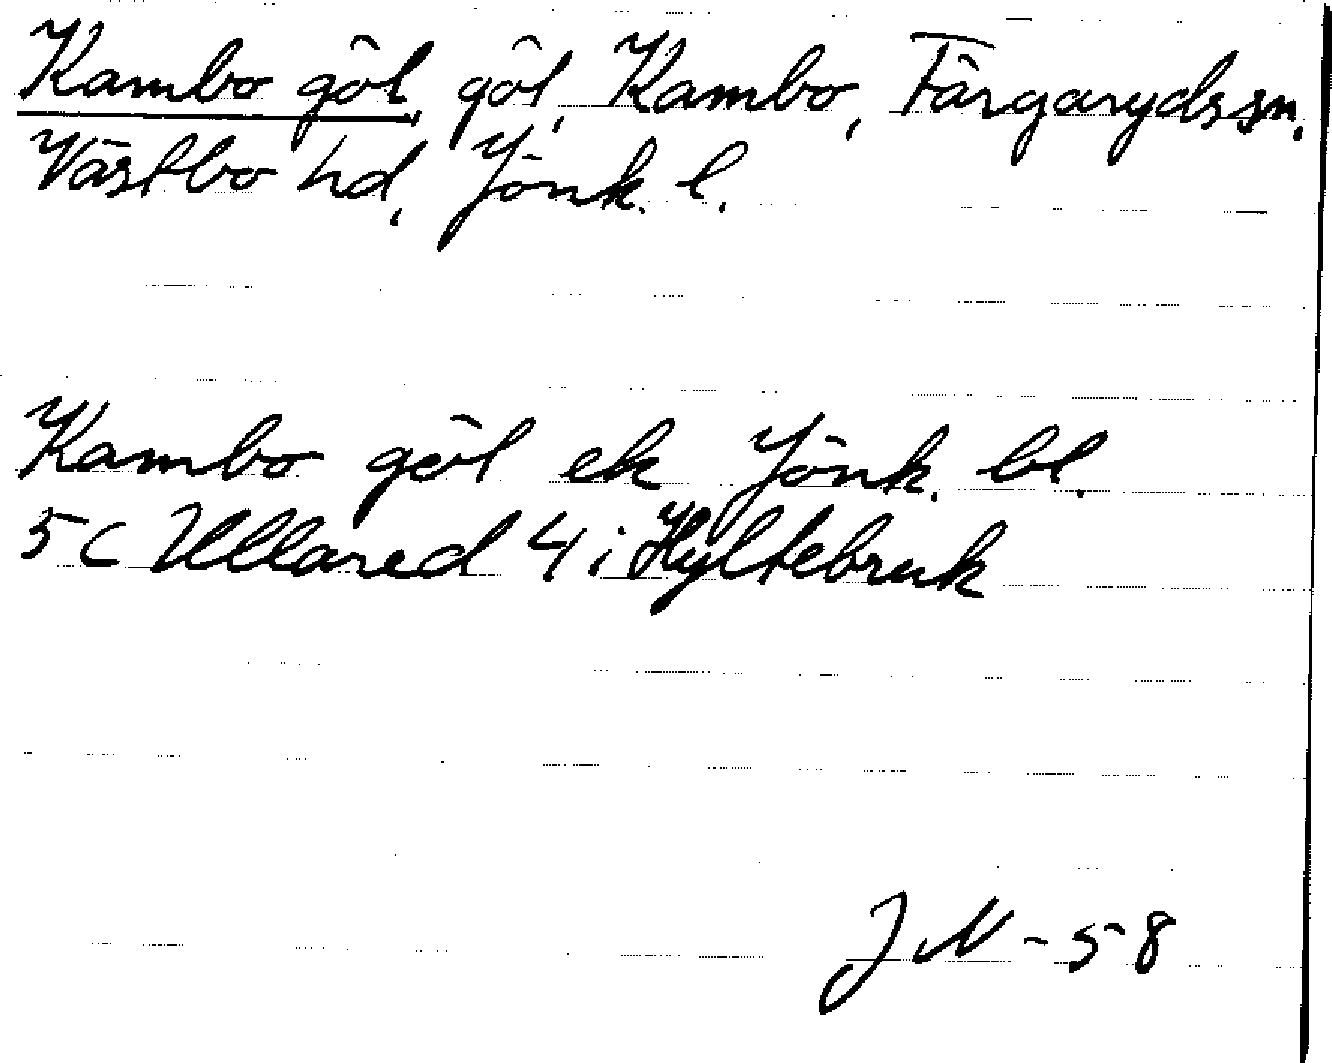 Kambo göl, göl, Kambo, Färgaryds sn,
Västbo hd, Jönk. l.
Kambo göl ek Jönk. bl.
5 C Ullared 4 i Hyltebruk
JN - 58